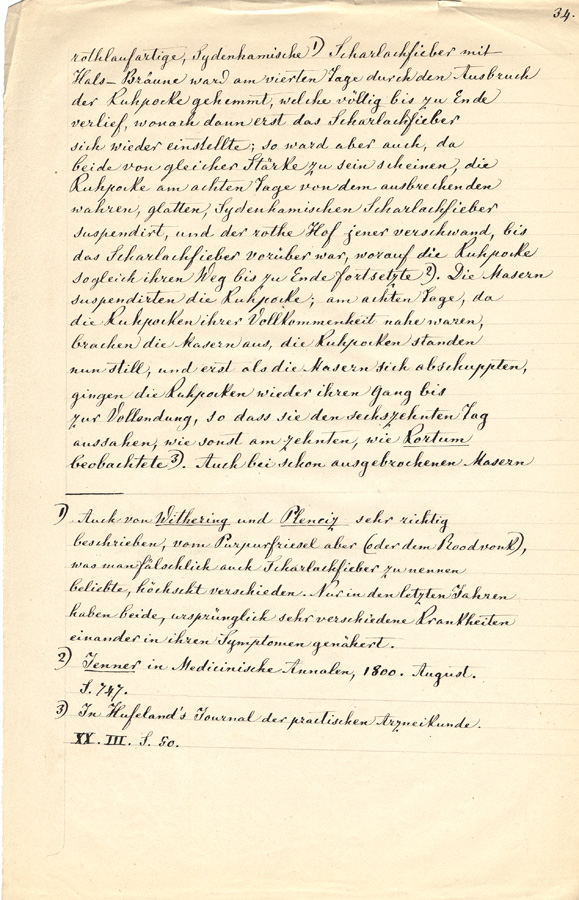 34.
rothlaufartige, Sydenhamische 1) Scharlachfieber mit
Hals-Bräune ward am vierten Tage durch den Ausbruch
der Kuhpocke gehemmt, welche völlig bis zu Ende
verlief, wonach dann erst das Scharlachfieber
sich wieder einstellte; so ward aber auch, da
beide von gleicher Stärke zu sein scheinen, die
Kuhpocke am achten Tage von dem ausbrechenden
wahren, glatten, Sydenhamischen Scharlachfieber
suspendirt, und der rothe Hof jener verschwand, bis
das Scharlachfieber vorüber war, worauf die Kuhpocke
sogleich ihren Weg bis zu Ende fortsetzte 2). Die Masern
suspendirten die Kuhpocke; am achten Tage, da
die Kuhpocken ihrer Vollkommenheit nahe waren,
brachen die Masern aus, die Kuhpocken standen
nun still, und erst als die Masern sich abschuppten,
gingen die Kuhpocken wieder ihren Gang bis
zur Vollendung, so dass sie den sechszehnten Tag
aussahen, wie sonst am zehnten, wie Kortum
beobachtete 3). Auch bei schon ausgebrochenen Masern
1) Auch von Withering und Plenciz sehr richtig
beschrieben, vom Purpurfriesel aber (oder dem Roodvonk),
was man fälschlich auch Scharlachfieber zu nennen
beliebte, höchsckt verschieden. Nur in den letzten Jahren
haben beide, ursprünglich sehr verschiedene Krankheiten
einander in ihren Symptomen genähert.
2) Jenner in Medicinische Annalen, 1800. August.
S. 747.
3) In Hufeland's Journal der practischen Arzneikunde.
XX. III. S. 50.